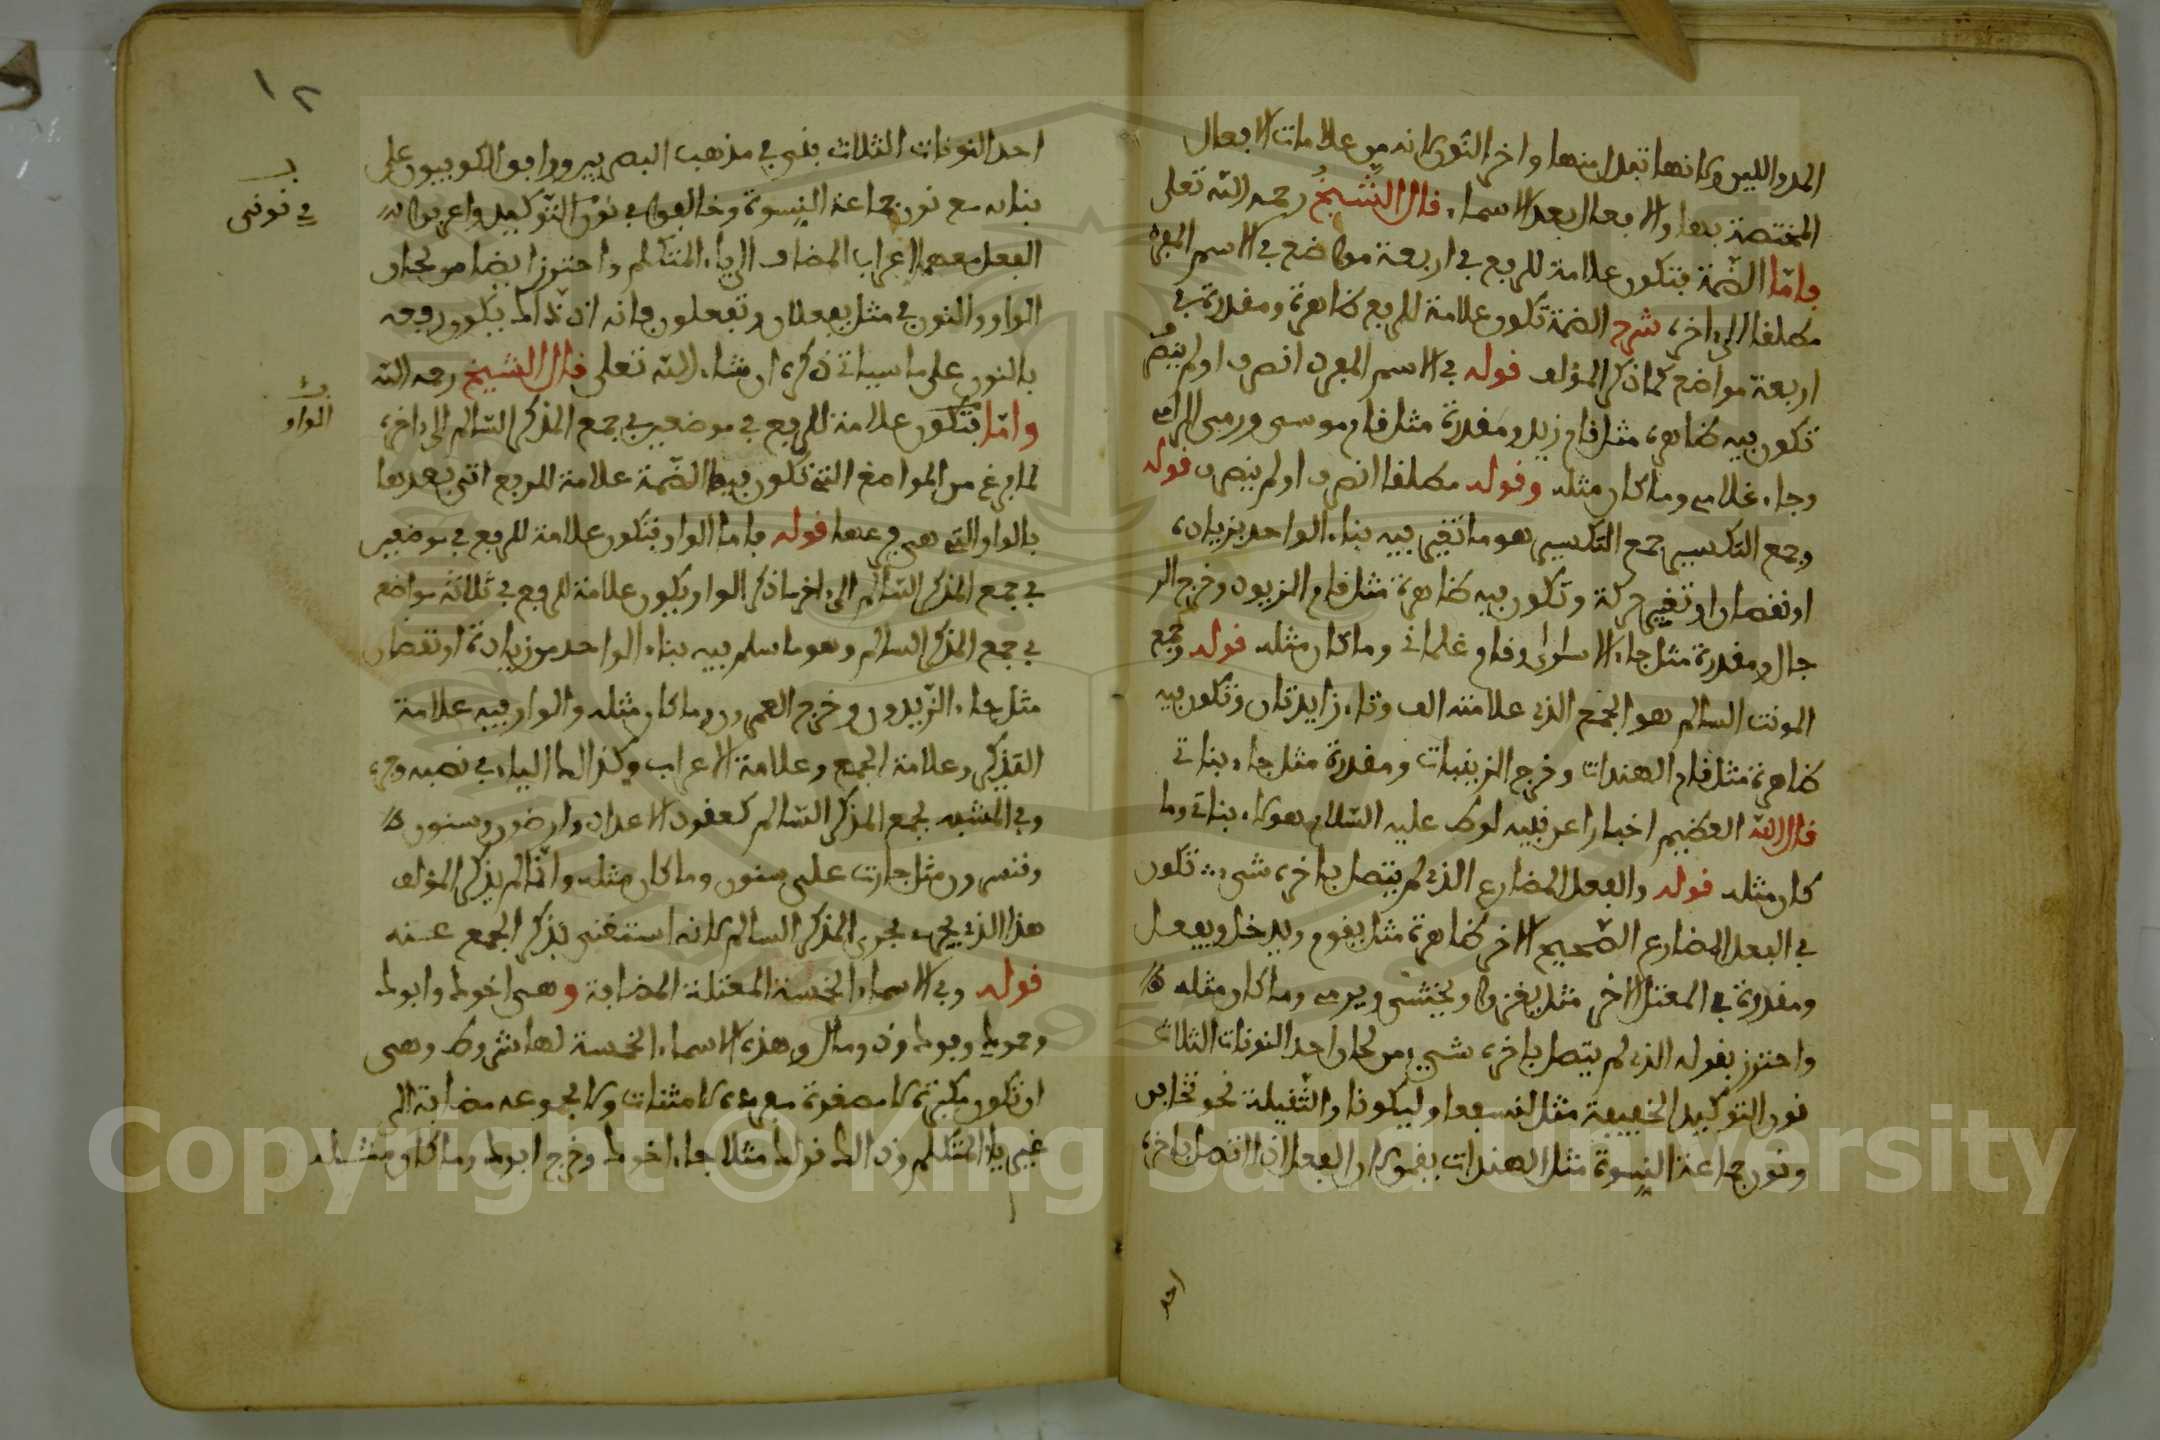 المد واللين ولانها تبدل منها واخر النون لانه من علامات الافعال
المختصة بها والافعال بعد الاسماء. قال الشيخ رحمه الله تعلى
فاما الضمة فتكون علامة للرفع في اربعة مواضع في الاسم المفرد
مطلقا الى اخره شرح الضمة تكون علامة للرفع ظاهرة ومقدرة في
اربعة مواضع كما ذكر المؤلف قوله في الاسم المفرد انصرف او لم ينصرف
تكون فيه ظاهرة مثل قام زيد ومقدرة مثل قام موسى ورمى الرامي
وجاء غلامي وما كان مثله وقوله مطلقا انصرف او لم ينصرف قوله
وجمع التكسير جمع التكسير هو ما تغير فيه بناء الواحد بزيادة
او نقصان او تغيير حركة وتكون فيه ظاهرة مثل قام الزيود وخرج الر
جال ومقدرة مثل جاء الاسارى وقام غلماني وما كان مثله قوله وجمع
المونث السالم هو الجمع الذي علامته الف وتاء زايدتان وتكون فيه
ظاهرة مثل قام الهندات وخرج الزينبات ومقدرة مثل جاء بناتي
قال الله العظيم اخبارا عن نبيه لوط عليه السلام هولاء بناتي وما
كان مثله قوله والفعل المضارع الذي لم يتصل باخره شيء تكون
في الفعل المضارع الصحيح الاخر ظاهرة مثل يقوم ويدخل ويفعل
ومقدرة في المعتل الاخر مثل يغزوا ويخشى ويرمي وما كان مثله
واحترز بقوله الذي لم يتصل باخره شيء من لحاق احد النونات الثلاث
نون التوكيد الخفيفة مثل لنسفعا وليكونا والثقيلة نحو تخافن
ونون جماعة النسوة مثل الهندات يقمن لان الفعل اذا اتصل باخره
احد
١٢
احد النونات الثلاث بني في مذهب البصريين ووافق الكوفيون على
بنائه مع نون جماعة النسوة وخالفوا في نون التوكيد واعربوا
الفعل معهما اعراب المضاف الى ياء المتكلم واحترز ايضا من لحاق
الواو والنون في مثل يفعلان وتفعلون فانه اذ ذاك يكون رفعه
بالنون على ما سياتي ذكره ان شاء الله تعلى قال الشيخ رحمه الله
واما فتكون علامة للرفع في موضعين في جمع المذكر السالم الى اخره
لما فرغ من المواضع التي تكون فيها الضمة علامة للرفع اتى بعدها
بالواو التي هي فرعها قوله فاما الواو فتكون علامة للرفع في موضعين
في جمع المذكر السالم الى اخر ما ذكر الواو يكون علامة للرفع في ثلاثة مواضع
في جمع المذكر السالم وهو ما سلم فيه بناء الواحد من زيادة او نقصان
مثل جاء الزيدون وخرج العمرون وما كان مثله والواو فيه علامة
التذكير وعلامة الجمع وعلامة الاعراب وكذالك الياء في نصبه وجره
وفي المشبه بجمع المذكر السالم كعقود الاعداد وارضون وسنون
وقنسرون مثل جارت على سنون وما كان مثله وانما لم يذكر المؤلف
هذا الذي يجري مجرى المذكر السالم لانه استغنى بذكر الجمع عنه
قوله وفي الاسماء الخمسة المعتلة المضافة وهي اخوك وابوك
وحموك وفوك وذو مال وهذه الاسماء الخمسة لها شروط وهي
ان تكون مكبرة لا مصغرة مفردة لا مثنات ولا مجموعه مضافة الى
غير ياء المتكلم وذالك قولك مثلا جاء اخوك وخرج ابوك وما كان مثله
في نونى
الواو
Copyright © King Saud University
1957